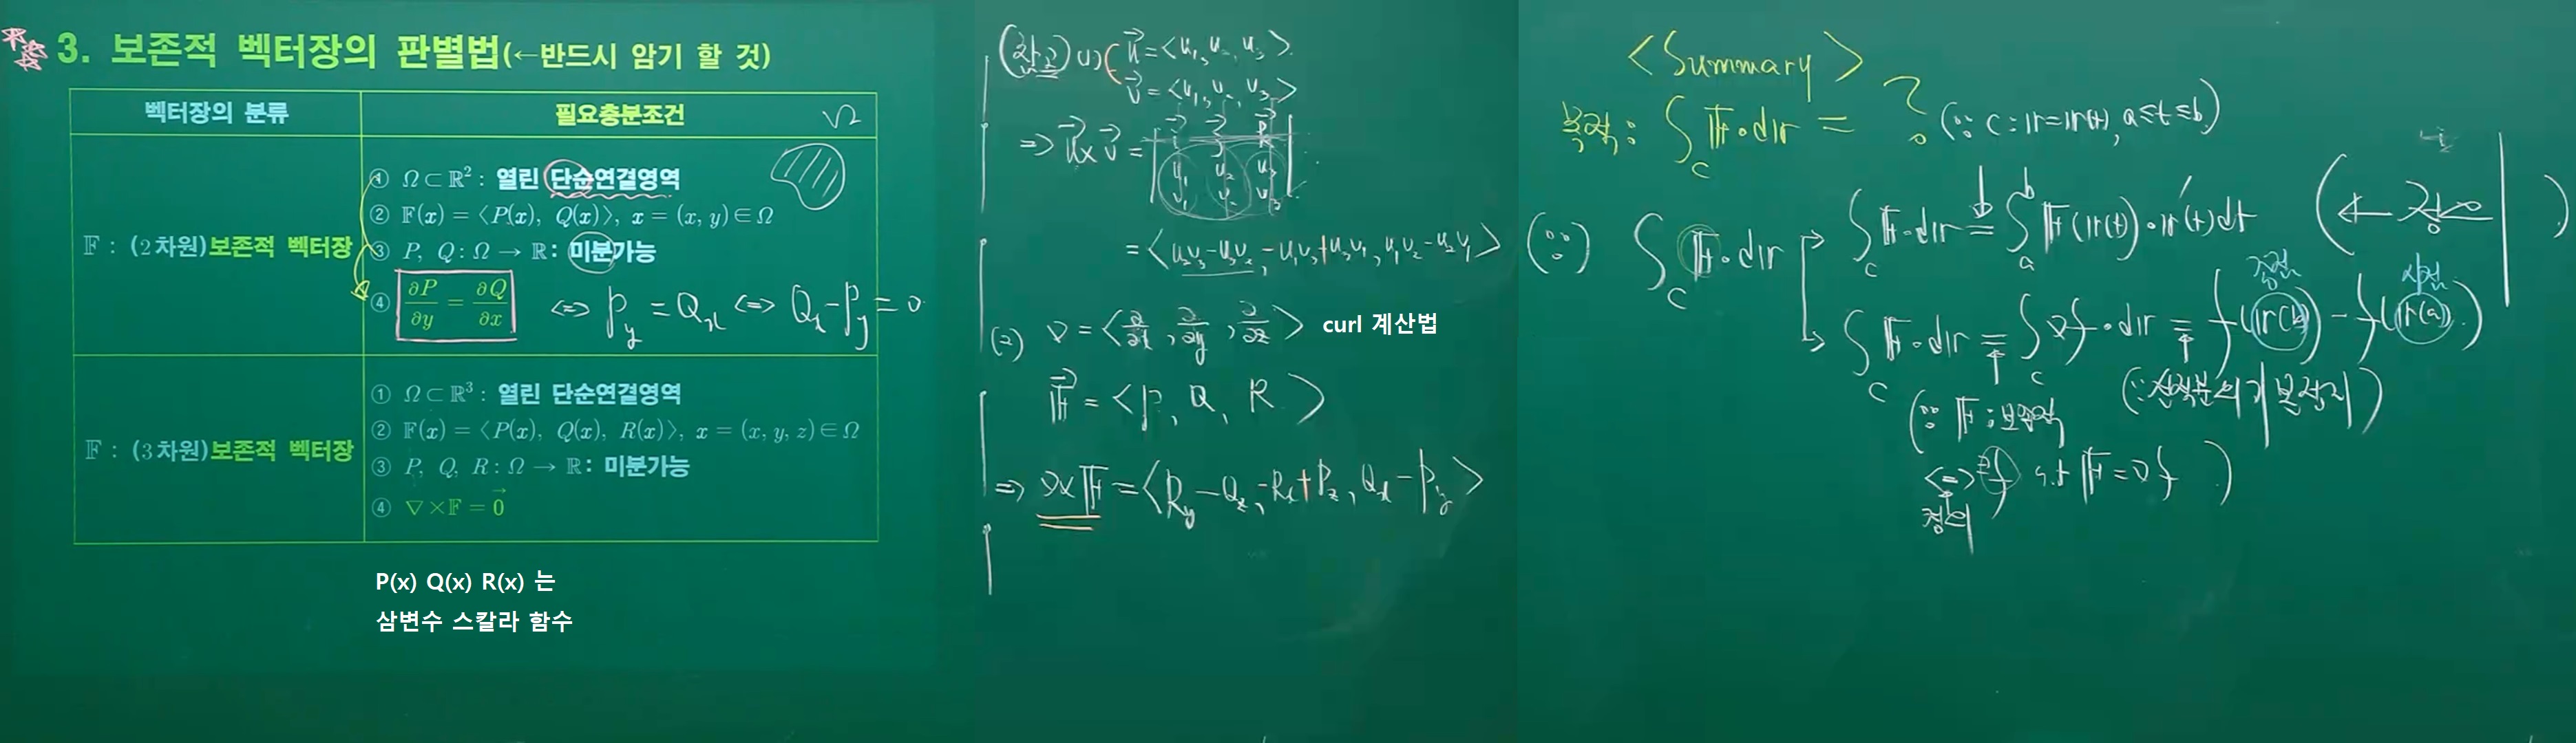 3. 보존적 벡터장의 판별법(←반드시 암기 할 것)
벡터장의 분류 필요충분조건 Ω
𝔽 : (2차원)보존적 벡터장
① Ω⊂ℝ² : 열린 단순연결영역
② 𝔽(x) = ⟨P(x), Q(x)⟩, x = (x, y)∈Ω
③ P, Q : Ω → ℝ : 미분가능
④ ∂P/∂y = ∂Q/∂x ⇔ P_y = Q_x ⇔ Q_x - P_y = 0
𝔽 : (3차원)보존적 벡터장
① Ω⊂ℝ³ : 열린 단순연결영역
② 𝔽(x) = ⟨P(x), Q(x), R(x)⟩, x = (x, y, z)∈Ω
③ P, Q, R : Ω → ℝ : 미분가능
④ ∇×𝔽 = 0⃗
P(x) Q(x) R(x) 는
삼변수 스칼라 함수
(참고) (1) u⃗ = <u₁, u₂, u₃>
v⃗ = <v₁, v₂, v₃>
⇒ u⃗ × v⃗ = | i⃗ j⃗ k⃗ |
u₁ u₂ u₃
v₁ v₂ v₃
= <u₂v₃-u₃v₂, -u₁v₃+u₃v₁, u₁v₂-u₂v₁>
(2) ∇ = <∂/∂x, ∂/∂y, ∂/∂z> curl 계산법
𝔽⃗ = <P, Q, R>
⇒ ∇×𝔽 = <R_y - Q_z, -R_x + P_z, Q_x - P_y>
<Summary>
목적: ∫_C 𝔽·dr = ? (∵ C : r = r(t), a≤t≤b)
(∵) ∫_C 𝔽·dr
∫_C 𝔽·dr = ∫_a^b 𝔽(r(t))·r'(t)dt (←정의)
종점 시점
∫_C 𝔽·dr = ∫_C ∇f·dr = f(r(b)) - f(r(a))
(∵ 𝔽 : 보존적 (∵ 선적분의 기본정리)
⇔ ∃f s.t 𝔽 = ∇f)
정의